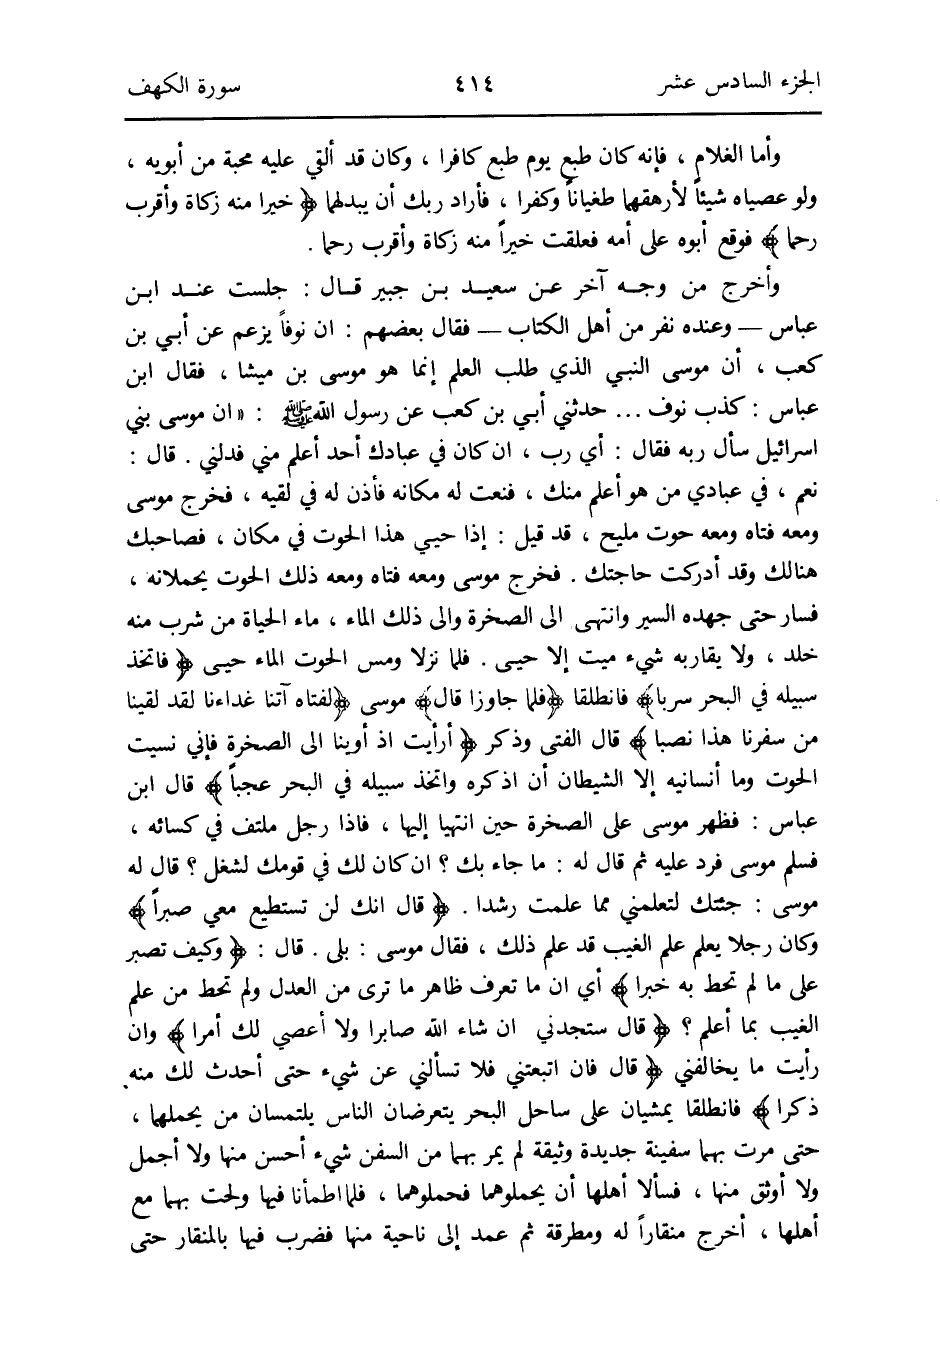 الجزء السادس عشر ٤١٤ سورة الكهف
وأما الغلام ، فإنه كان طبع يوم طبع كافرا ، وكان قد ألقي عليه محبة من أبويه ،
ولو عصياه شيئاً لأرهقهما طغياناً وكفرا ، فأراد ربك أن يبدلهما ﴿ خيرا منه زكاة وأقرب
رحما ﴾ فوقع أبوه على أمه فعلقت خيراً منه زكاة وأقرب رحما .
وأخرج من وجه آخر عن سعيد بن جبير قال : جلست عند ابن
عباس — وعنده نفر من أهل الكتاب — فقال بعضهم : ان نوفاً يزعم عن أبي بن
كعب ، أن موسى النبي الذي طلب العلم إنما هو موسى بن ميشا ، فقال ابن
عباس : كذب نوف ... حدثني أبي بن كعب عن رسول الله ﷺ : « ان موسى بني
اسرائيل سأل ربه فقال : أي رب ، ان كان في عبادك أحد أعلم مني فدلني . قال :
نعم ، في عبادي من هو أعلم منك ، فنعت له مكانه فأذن له في لقيه ، فخرج موسى
ومعه فتاه ومعه حوت مليح ، قد قيل : إذا حيي هذا الحوت في مكان ، فصاحبك
هنالك وقد أدركت حاجتك . فخرج موسى ومعه فتاه ومعه ذلك الحوت يحملانه ،
فسار حتى جهده السير وانتهى الى الصخرة والى ذلك الماء ، ماء الحياة من شرب منه
خلد ، ولا يقاربه شيء ميت إلا حيي . فلما نزلا ومس الحوت الماء حيي ﴿ فاتخذ
سبيله في البحر سربا﴾ فانطلقا ﴿فلما جاوزا قال﴾ موسى ﴿لفتاه آتنا غداءنا لقد لقينا
من سفرنا هذا نصبا ﴾ قال الفتى وذكر ﴿ أرأيت اذ أوينا الى الصخرة فإني نسيت
الحوت وما أنسانيه إلا الشيطان أن اذكره واتخذ سبيله في البحر عجباً ﴾ قال ابن
عباس : فظهر موسى على الصخرة حين انتهيا إليها ، فاذا رجل ملتف في كسائه ،
فسلم موسى فرد عليه ثم قال له : ما جاء بك ؟ ان كان لك في قومك لشغل ؟ قال له
موسى : جئتك لتعلمني مما علمت رشدا . ﴿ قال انك لن تستطيع معي صبراً ﴾
وكان رجلا يعلم علم الغيب قد علم ذلك ، فقال موسى : بلى . قال : ﴿ وكيف تصبر
على ما لم تحط به خبرا ﴾ أي ان ما تعرف ظاهر ما ترى من العدل ولم تحط من علم
الغيب بما أعلم ؟ ﴿ قال ستجدني ان شاء الله صابرا ولا أعصي لك أمرا ﴾ وان
رأيت ما يخالفني ﴿ قال فان اتبعتني فلا تسألني عن شيء حتى أحدث لك منه
ذكرا ﴾ فانطلقا يمشيان على ساحل البحر يتعرضان الناس يلتمسان من يحملهما ،
حتى مرت بهما سفينة جديدة وثيقة لم يمر بهما من السفن شيء أحسن منها ولا أجمل
ولا أوثق منها ، فسألا أهلها أن يحملوهما فحملوهما ، فلما اطمأنا فيها ولجت بهما مع
أهلها ، أخرج منقاراً له ومطرقة ثم عمد إلى ناحية منها فضرب فيها بالمنقار حتى